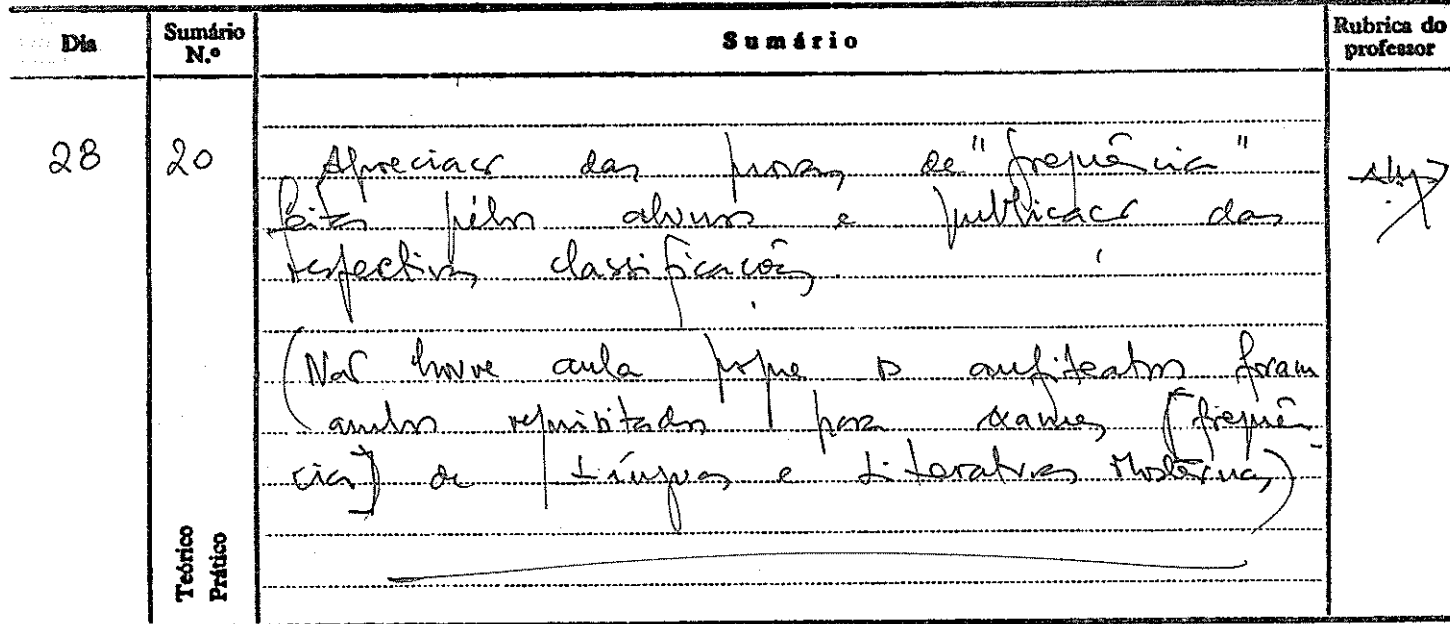 Dia
Sumário N.º
Sumário
Rubrica do professor
28
20
Apreciação das provas de "frequência"
feitas pelos alunos e publicação das
respectivas classificações.
(Não houve aula porque os anfiteatros foram
ambos requisitados para exames [frequên-
cias] de Línguas e Literaturas Modernas)
Teórico
Prático